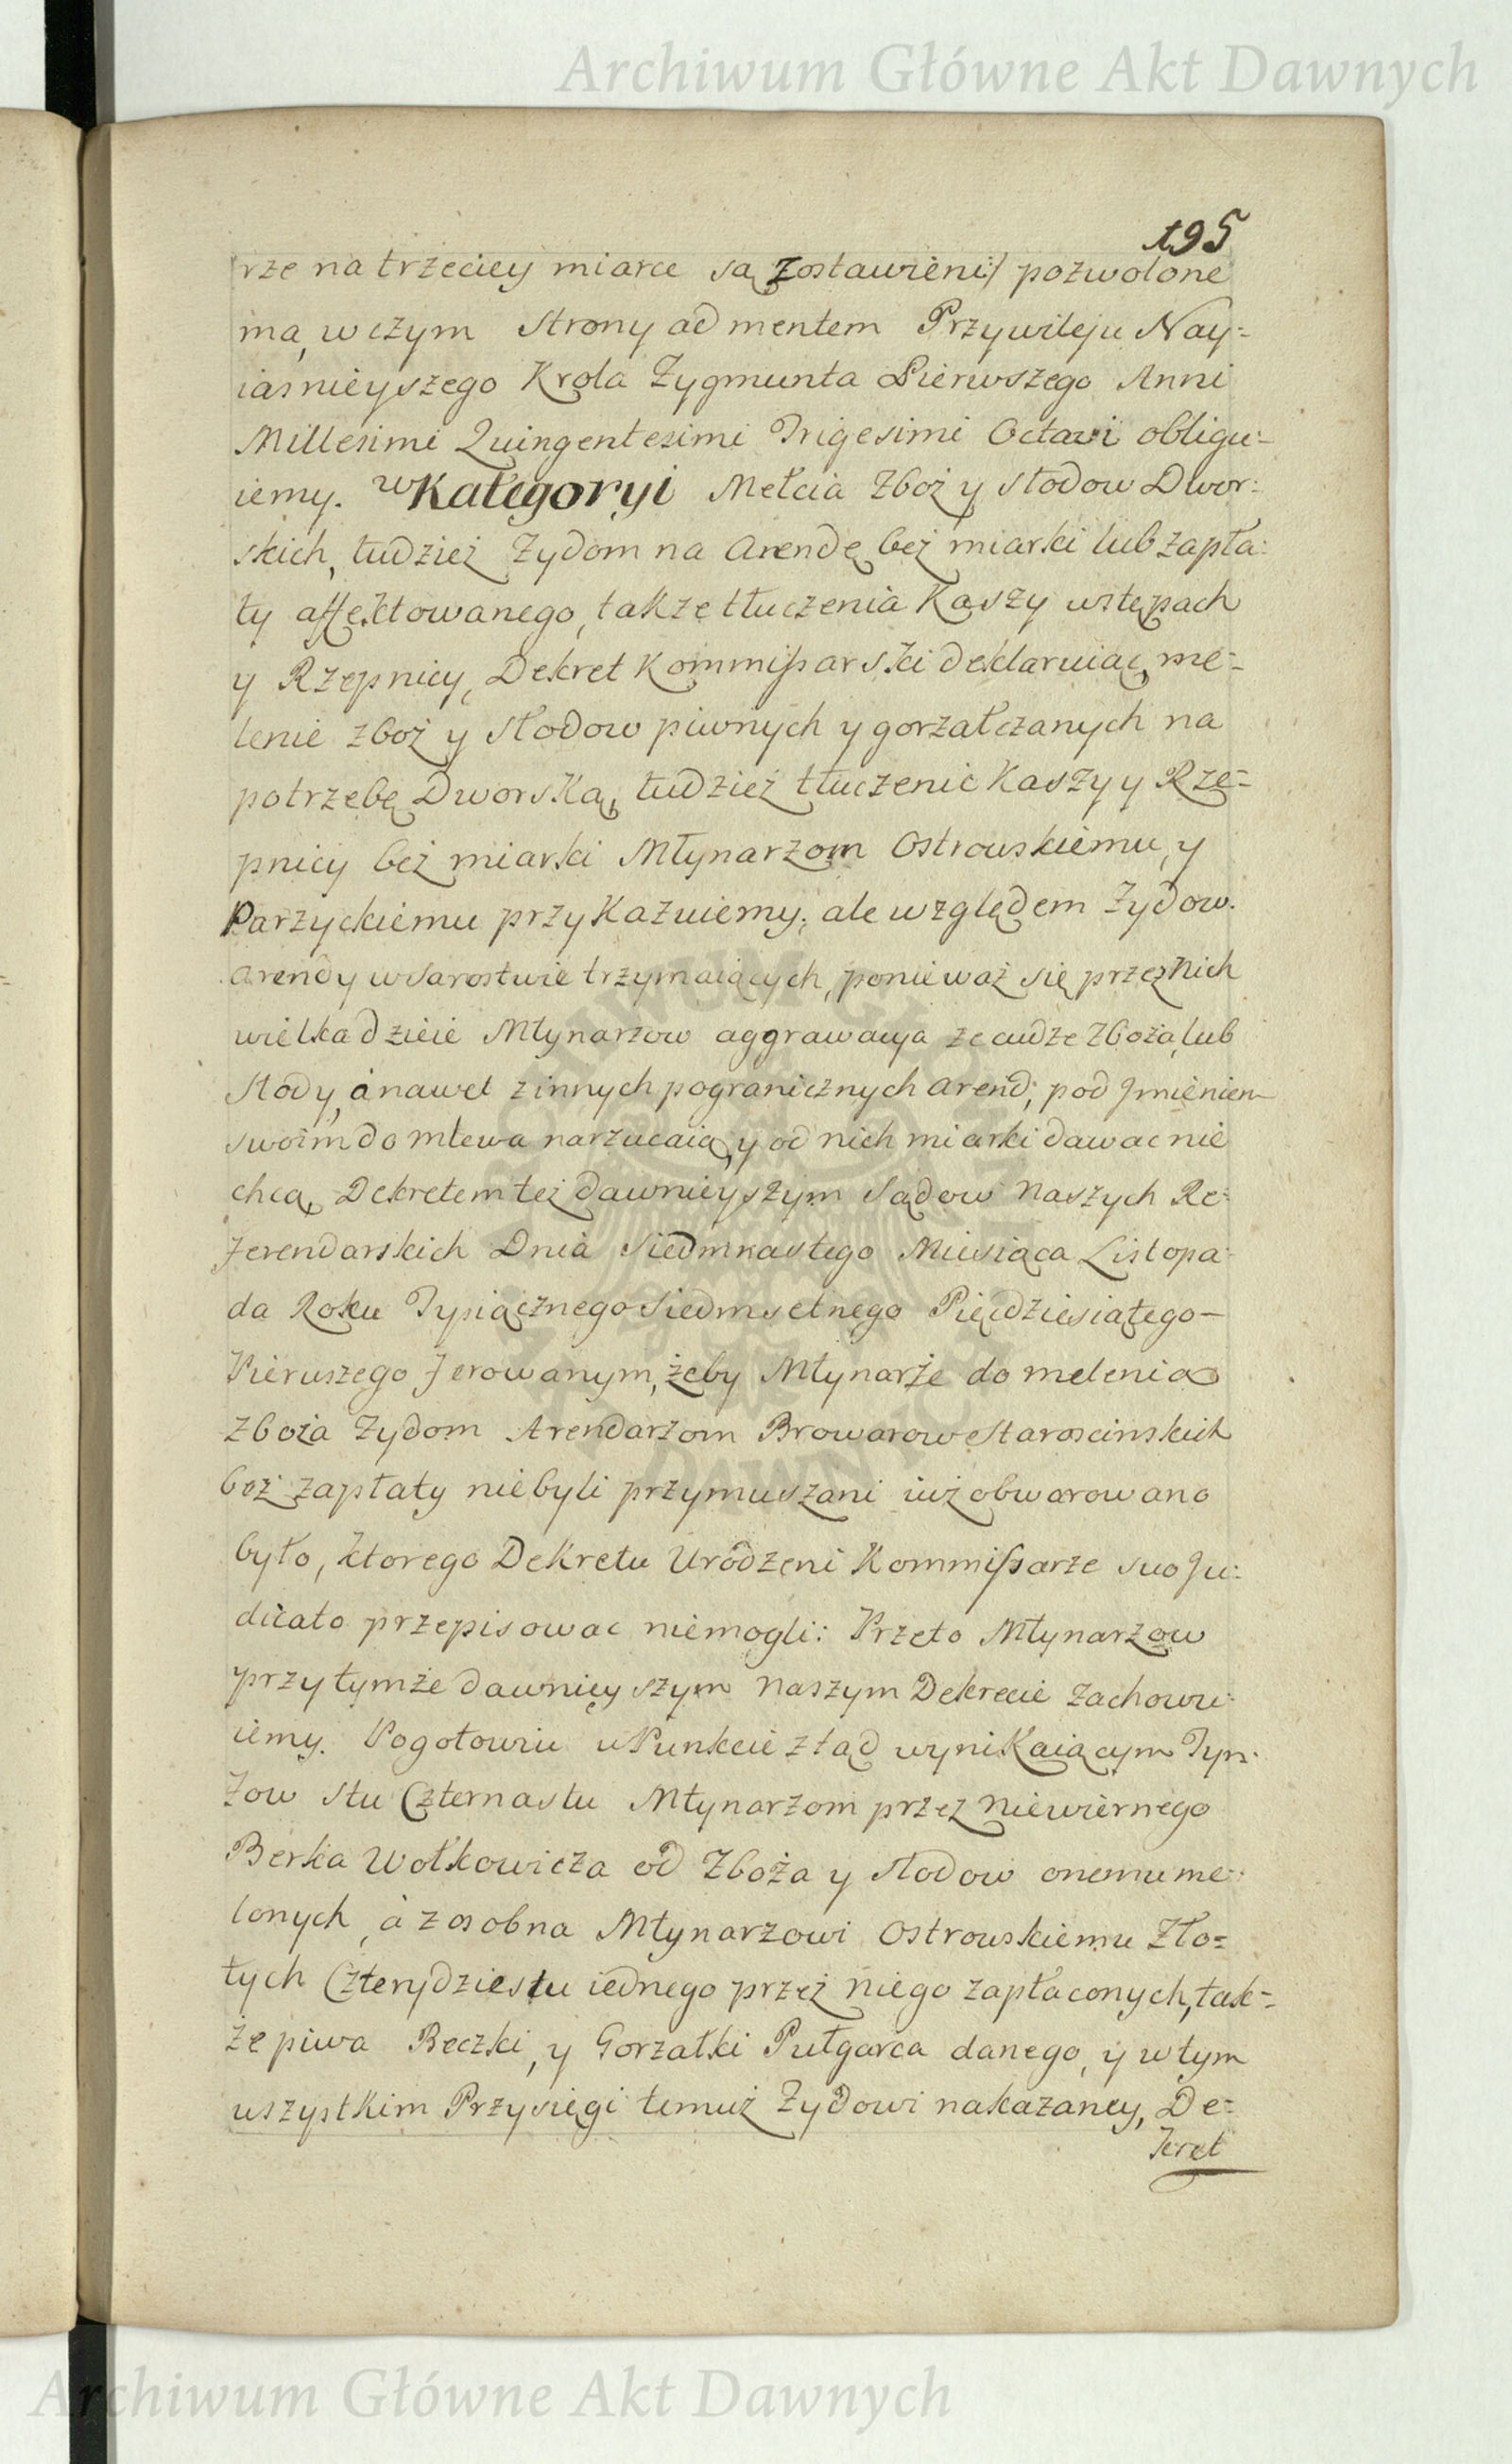 Archiwum Główne Akt Dawnych
195
rze na trzeciey miarce są zostawieni:/ pozwolone
ma, w czym Strony ad mentem Przywileju Nay=
iasnieyszego Krola Zygmunta Pierwszego Anni
Millesimi Quingentesimi Trigesimi Octavi obligu=
iemy. w Kategoryi Mełcia Zboż y słodow Dwor=
skich, tudzież Zydom na Arendę bez miarki lub zapła=
ty affektowanego, takze tłuczenia Kaszy w stępach
y Rzepnicy, Dekret Kommissarski deklaruiąc, me=
lenie zboż y słodow piwnych y gorzałczanych na
potrzebę Dworską, tudzież tłuczenie Kaszy y Rze=
pnicy bez miarki Młynarzom Ostrowskiemu, y
Parzyckiemu przykazuiemy, ale względem Zydow.
arendy w Sarostwie trzymaiących, ponieważ się przez Nich
wielka dzieie Młynarzow aggrawacya ze cudze Zboża, lub
Słody, á nawet z innych pogranicznych arend, pod Jmieniem
swoim do mlewa narzucaią, y od nich miarki dawac nie
chcą, Dekretem też dawnieyszym Sądow Naszych Re=
ferendarskich Dnia Siedmnastego Miesiąca Listopa=
da Roku Tysiącznego Siedmsetnego Pięcdziesiątego
Pierwszego ferowanym, żeby Młynarże do melenia
Zboża Zydom Arendarzom Browarow Staroscinskich
bez zapłaty nie byli przymuszani iuż obwarowano
było, ktorego Dekretu Urodzeni Kommissarze suo Ju=
dicato przepisowac niemogli: Przeto Młynarzow
przy tymże dawnieyszym Naszym Dekrecie zachowu=
iemy. Pogotowiu w Punkcie ztąd wynikaiącym Tyn=
fow Stu Czternastu Młynarzom przez Niewiernego
Berka Wołkowicza od Zboża y słodow onemu me=
lonych, á z osobna Młynarzowi Ostrowskiemu Zło=
tych Czterydziestu iednego przez niego zapłaconych, tak=
że piwa Beczki, y Gorzałki Pułgarca danego, y w tym
wszystkim Przysięgi temuż Zydowi nakazaney, De=
kret
Archiwum Główne Akt Dawnych